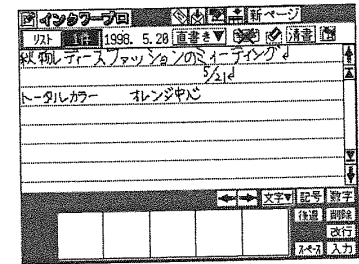 インクワープロ 新ページ
リスト 1件 1998. 5.20 直書き▼ 清書
秋物レディースファッションのミーティング↲
5/21↲
トータルカラー オレンジ中心
文字▼ 記号 数字
後退 削除
改行
スペース 入力